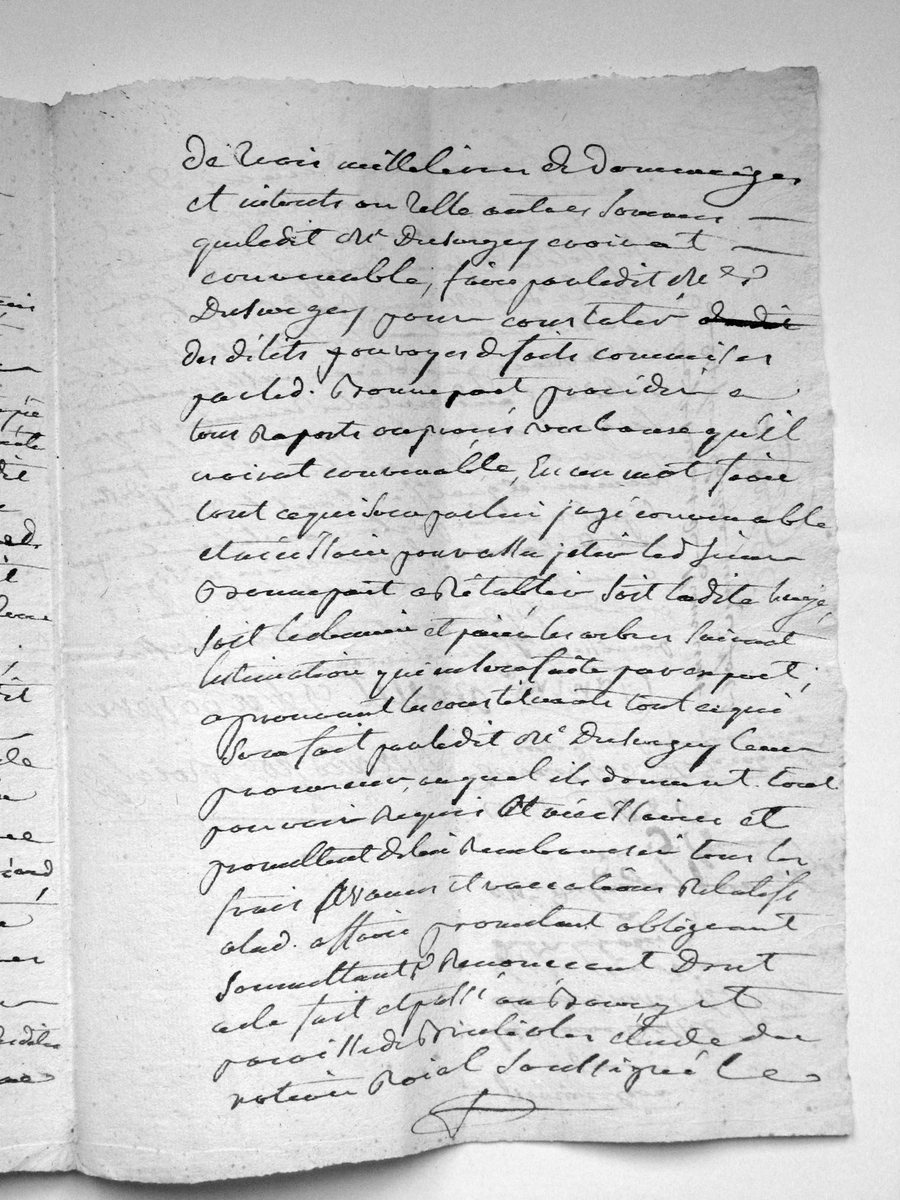 de trois mille livres de dommages
et interets ou telle autres sommes
queledit Me Dusurgey croirat
convenable, faire par ledit Me
Dusurgey pour constater
des délits et voyes de faits commises
par led. Bonnepart procéder a
tous raports ou procès verbause qu'il
croirat convenable, En un mot faire
tout ce qui sera par lui jugé convenable
et nécéssaire pour assujetir led sieur
Bonnepart a Rétablir soit ladite haye,
soit le chemin et paier les arbres suivant
lestimation qui en sera faite par expert;
aprouvant les constituants tout ce qui
Sera fait par ledit Me Dusurgey leur
procureur, auquel ils donnent tout
pouvoir Requis Et nécéssaires et
promettent de lui Rembourser tous les
frais avances et vaccations Relatifs
alad. affaire promettant obligeant
Soumettants Renoncent Dont
acte fait et passé au Bourg et
paroisse de étude du
notaire Roial Soussigné Le